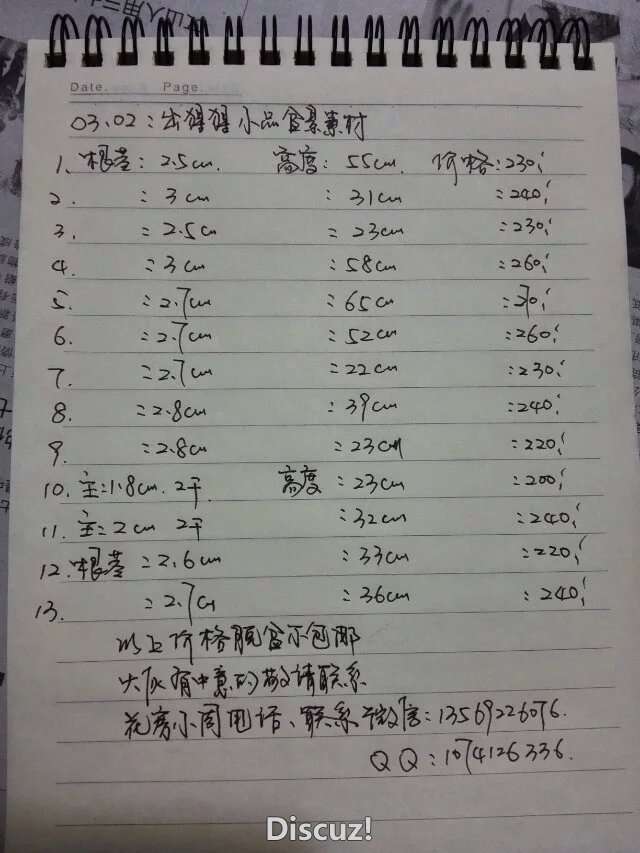 Date. Page.
03.02：出猩猩小品盆景素材
1. 根茎：2.5cm. 高度：55cm. 价格：230.
2. ：3cm ：31cm ：240.
3. ：2.5cm ：23cm ：230.
4. ：3cm ：58cm ：260.
5. ：2.7cm ：65cm
6. ：2.7cm ：52cm ：260.
7. ：2.7cm ：22cm ：230.
8. ：2.8cm ：39cm ：240.
9. ：2.8cm ：23cm ：220.
10. 主：1.8cm. 2干. 高度：23cm ：200.
11. 主：2cm 2干 ：32cm ：240.
12. 根茎：2.6cm ：33cm ：220.
13. ：2.7cm ：36cm ：240.
以上价格脱盆不包邮
大伙有中意的敬请联系
花房小周电话、联系微信：13569226076.
QQ：1074126336.
Discuz!